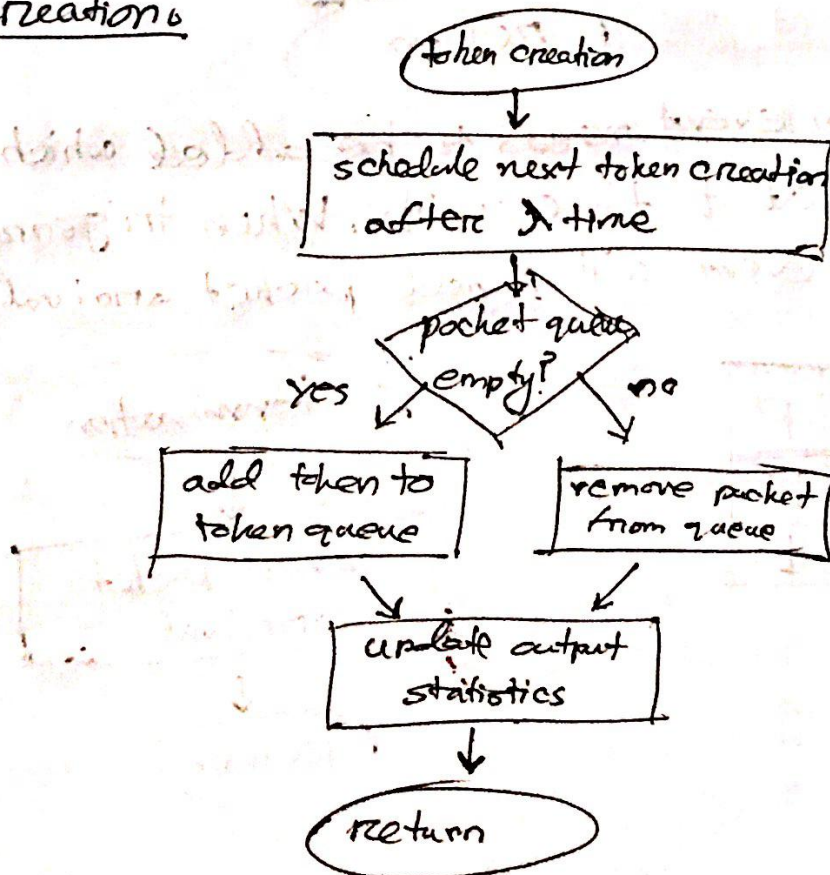 creation.
token creation
schedule next token creation
after λ time
packet queue
empty?
yes
no
add token to
token queue
remove packet
from queue
update output
statistics
return